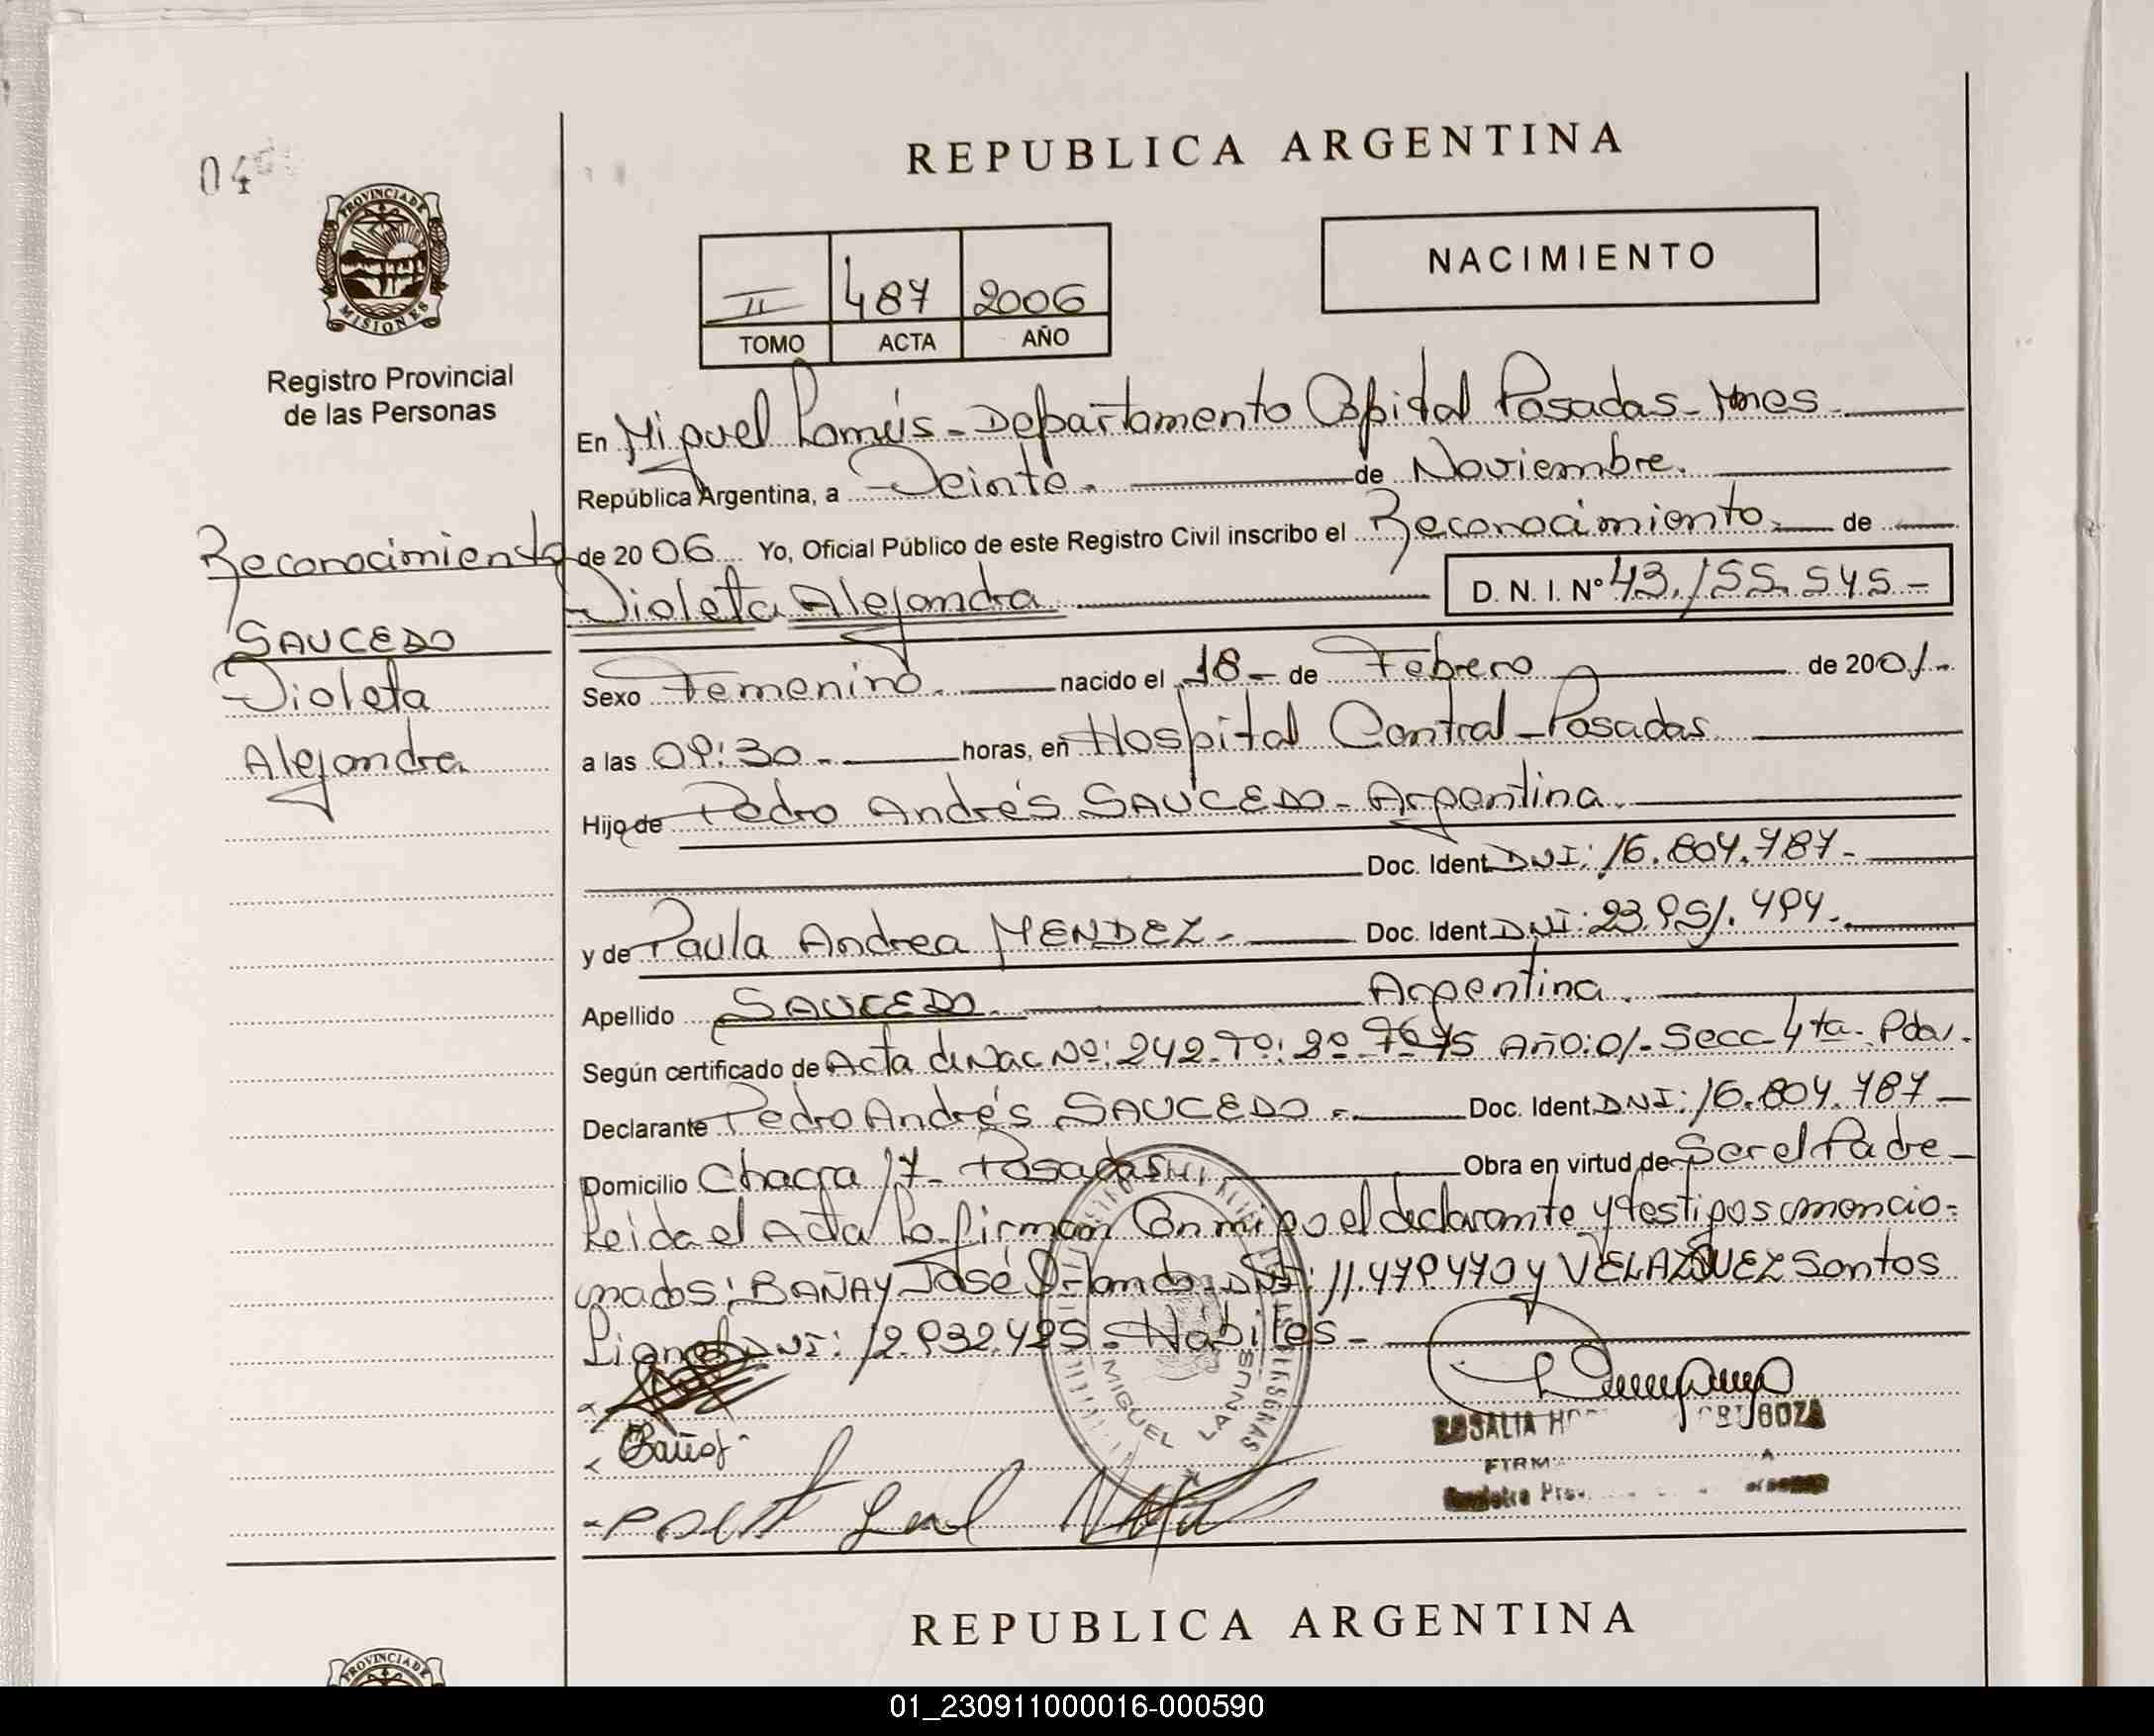 04
REPUBLICA ARGENTINA
PROVINCIA DE
MISIONES
Registro Provincial
de las Personas
II 487 2006
TOMO ACTA AÑO
NACIMIENTO
En Miguel Lanús - Departamento Capital Posadas - Mnes
República Argentina, a Veinte. de Noviembre.
de 2006 Yo, Oficial Público de este Registro Civil inscribo el Reconocimiento. de
Violeta Alejandra D. N. I. Nº 43.155.545.-
Reconocimiento
SAUCEDO
Violeta
Alejandra
Sexo Femenino. nacido el 18- de Febrero de 2001.-
a las 09:30.- horas, en Hospital Central - Posadas
Hijo de Pedro Andrés SAUCEDO - Argentina.
Doc. Ident DNI: 16.804.787-
y de Paula Andrea MENDEZ - Doc. Ident DNI: 23.951.494.
Apellido SAUCEDO. Argentina.
Según certificado de Acta de Nac Nº: 242-Tº: 2º Año: 01- Secc 4ta - Pdas.
Declarante Pedro Andrés SAUCEDO - Doc. Ident DNI: 16.804.787-
Domicilio Chacra 17- Posadas Obra en virtud de Ser el Padre -
Leida el Acta la firman Conmigo el declarante y testigos mencio-
nados: BAÑAY José Orlando DNI: 11.479470 y VELAZQUEZ Santos
DNI: 12.932.425 - Hábiles -
MIGUEL LANUS
ROSALIA
REPUBLICA ARGENTINA
PROVINCIA DE
01_230911000016-000590